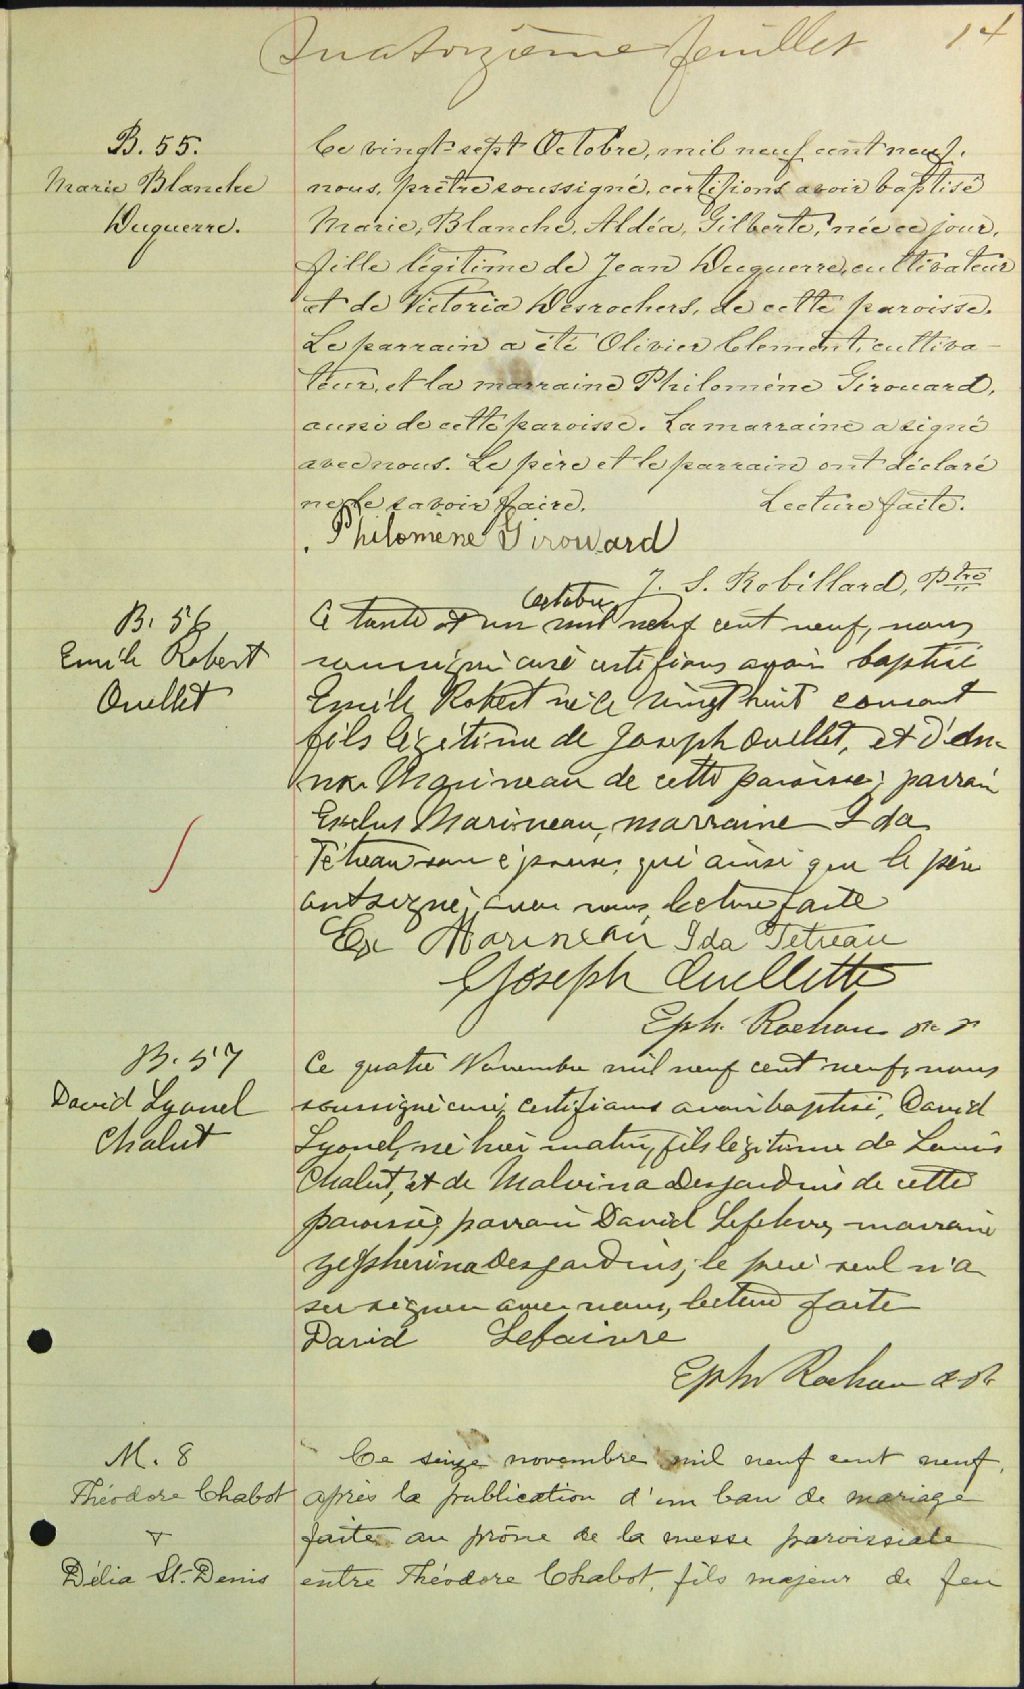 Quatorzième feuillet 14
B. 55.
Marie Blanche
Duguerre.
Ce vingt-sept Octobre, mil neuf cent neuf,
nous, prêtre soussigné, certifions avoir baptisé
Marie, Blanche, Aldéa, Gilberte, née ce jour,
fille légitime de Jean Duguerre, cultivateur
et de Victoria Desrochers, de cette paroisse.
Le parrain a été Olivier Clement, cultiva-
teur, et la marraine Philomène Girouard,
aussi de cette paroisse. La marraine a signé
avec nous. Le père et le parrain ont déclaré
ne le savoir faire. Lecture faite.
Philomène Girouard
J. S. Robillard, Ptre
B. 56
Emile Robert
Ouellet
Octobre
Ce trente et un mil neuf cent neuf, nous
soussigné curé certifions avoir baptisé
Emile Robert né le vingt huit courant
fils légitime de Joseph Ouellet, et d'
Marineau de cette paroisse; parrain
Marineau, marraine Ida
Tétreau son épouse, qui ainsi que le père
ont signé avec nous, lecture faite
Ex Marineau Ida Tetreau
Joseph Ouellette
Eph. Rochon
B. 57
David Lyonel
Chalut
Ce quatre Novembre mil neuf cent neuf, nous
soussigné curé, certifions avoir baptisé, David
Lyonel, né hier matin, fils légitime de Louis
Chalut, et de Malvina Desjardins de cette
paroisse, parrain David Lefebvre, marraine
Zepherina Desjardins; le père seul n'a
su signer avec nous, lecture faite
David Lefaivre
Eph Rochon
M. 8
Théodore Chabot
&
Délia St-Denis
Ce seize novembre mil neuf cent neuf,
après la publication d'un ban de mariage
faite au prône de la messe paroissiale
entre Théodore Chabot, fils majeur de feu